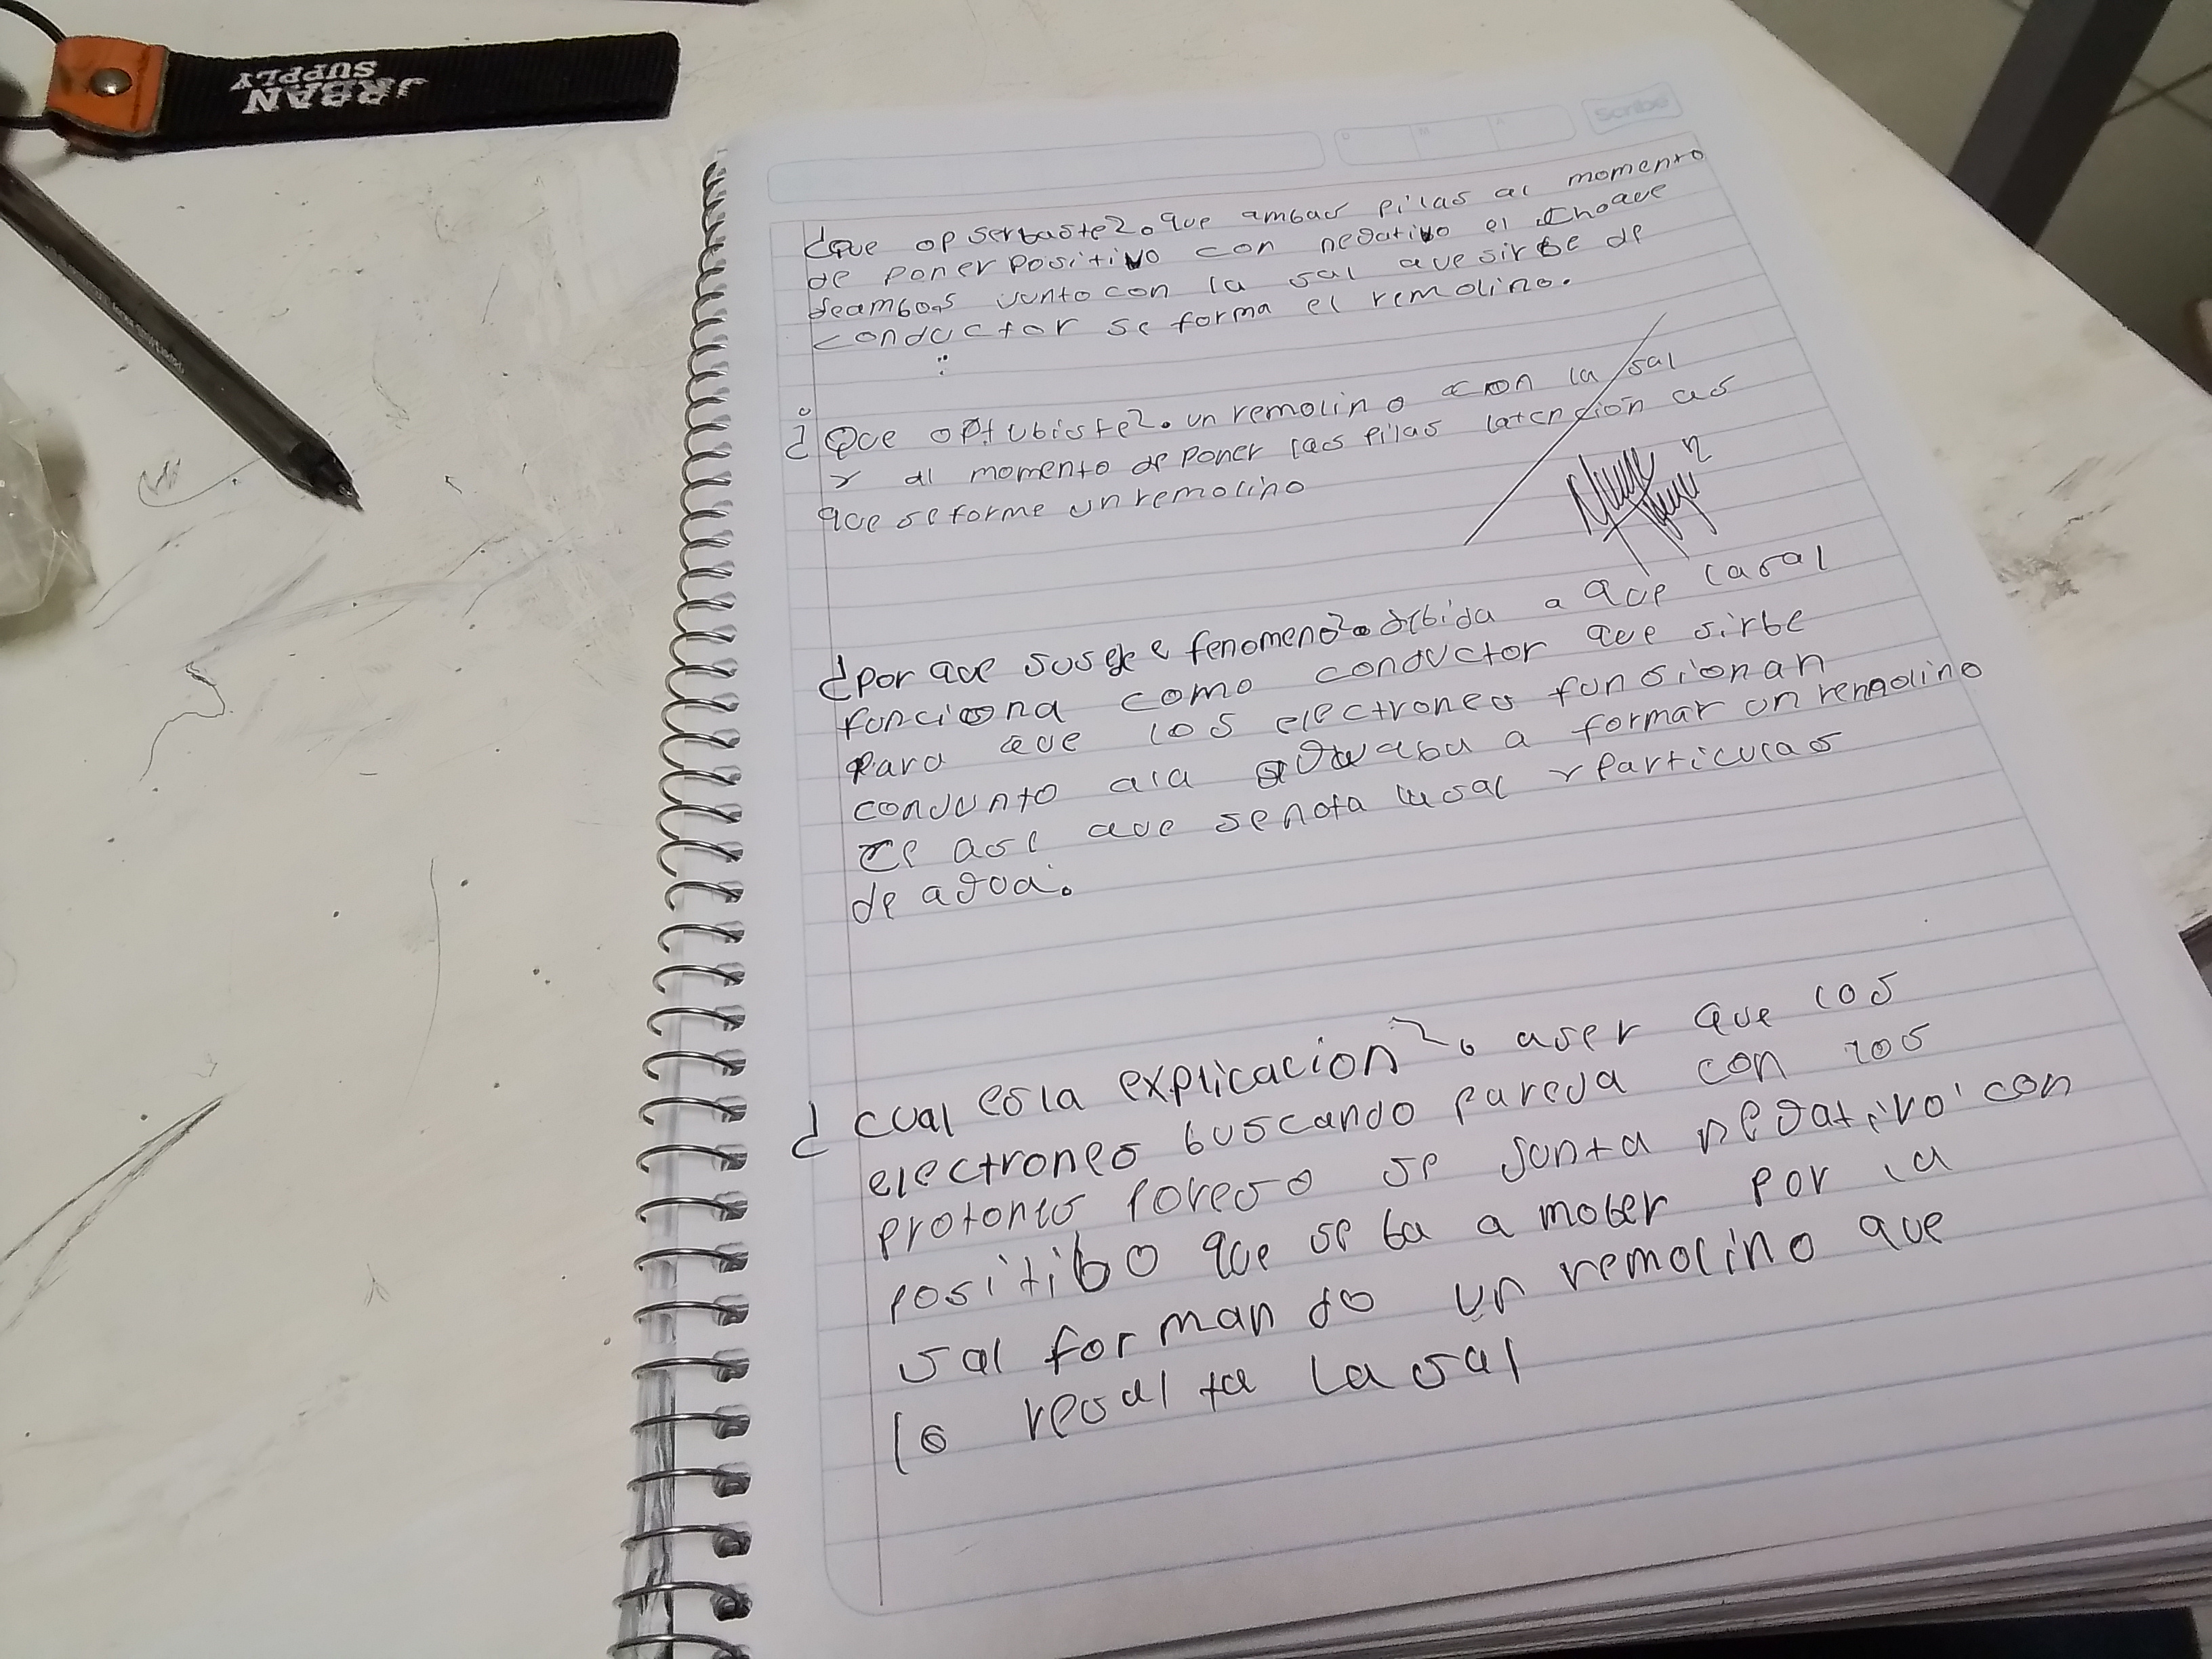 URBAN
SUPPLY
Scribe
D M A
¿Que opserbaste? que ambas pilas al momento
de poner positivo con negativo el choque
deambos junto con la sal que sirbe de
conductor se forma el remolino.
¿Que optubiste? un remolino con la sal
y al momento de poner las pilas
que se forme un remolino
¿por que fenomeno? debida a que lasal
funciona como conductor que sirbe
para que los electrones funsionan
conjunto ala a formar un remolino
es asi que senota lasal y particulas
de agua.
¿cual esla explicacion? aser que los
electrones buscando pareja con los
protones poreso se junta negativo con
positibo que se ba a mober por la
sal formando un remolino que
lo resalta la sal